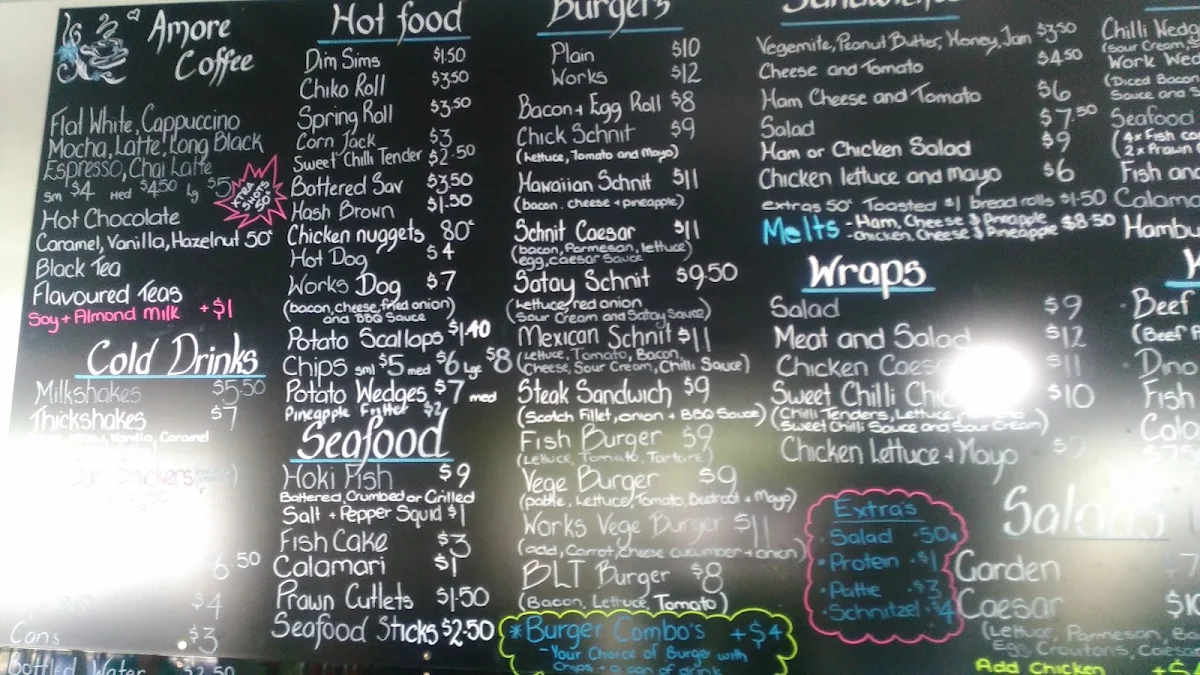 Amore
Coffee
Flat White, Cappuccino
Mocha, Latte, Long Black
Espresso, Chai Latte
sm $4 med $4.50 lg $5
XTRA SHOTS 50c
Hot Chocolate
Caramel, Vanilla, Hazelnut 50c
Black Tea
Flavoured Teas
Soy + Almond Milk +$1
Cold Drinks
Milkshakes $5.50
Thickshakes $7
Vanilla, Caramel
Snickers
6.50
$4
Cans $3
Bottled Water $2.50
Hot food
Dim Sims $1.50
Chiko Roll $3.50
Spring Roll $3.50
Corn Jack $3
Sweet Chilli Tender $2.50
Battered Sav $3.50
Hash Brown $1.50
Chicken nuggets 80c
Hot Dog $4
Works Dog $7
(bacon, cheese, fried onion)
and BBQ Sauce
Potato Scallops $1.40
Chips sml $5 med $6 Lge $8
Potato Wedges $7 med
Pineapple Fritter $2
Seafood
Hoki Fish $9
Battered, Crumbed or Grilled
Salt + Pepper Squid $1
Fish Cake $3
Calamari $1
Prawn Cutlets $1.50
Seafood Sticks $2.50
Burgers
Plain $10
Works $12
Bacon + Egg Roll $8
Chick Schnit $9
(Lettuce, Tomato and Mayo)
Hawaiian Schnit $11
(bacon. cheese + pineapple)
Schnit Caesar $11
(bacon, Parmesan, lettuce)
(egg, caesar sauce
Satay Schnit $9.50
(Lettuce, red onion
(Sour Cream and Satay Sauce)
Mexican Schnit $11
(Lettuce, Tomato, Bacon,
(Cheese, Sour Cream, Chilli Sauce)
Steak Sandwich $9
(Scotch Fillet, onion + BBQ Sauce)
Fish Burger $9
(Lettuce, Tomato, Tartare)
Vege Burger $9
(pattie, Lettuce, Tomato, Beetroot + Mayo)
Works Vege Burger $11
(add, Carrot, cheese cucumber + onion)
BLT Burger $8
(Bacon, Lettuce, Tomato)
*Burger Combo's +$4
-Your Choice of Burger with
Chips + a can of drink
Sandwiches
Vegemite, Peanut Butter, Honey, Jam $3.50
Cheese and Tomato $4.50
Ham Cheese and Tomato $6
Salad $7.50
Ham or Chicken Salad $9
Chicken lettuce and mayo $6
extras 50c Toasted $1 bread rolls $1.50
Melts - Ham, Cheese & Pineapple
- Chicken, Cheese & Pineapple $8.50
Wraps
Salad $9
Meat and Salad $12
Chicken Caesar $11
Sweet Chilli Chicken $10
(Chilli Tenders, Lettuce,
(Sweet Chilli Sauce and Sour Cream)
Chicken Lettuce + Mayo
Extra's
• Salad • 50c
• Protein • $1
• Pattie • $3
• Schnitzel • $4
Salads
Garden
Caesar
(Lettuce, Parmesan,
Egg, Croutons,
Add Chicken
Chilli Wedg
(Sour Cream,
Work Wed
(Diced Bacon
Sauce and S
Seafood
(4x Fish
2x Prawn
Fish and
Calama
Hambu
• Beef
(Beef
• Dino
Fish
Cala